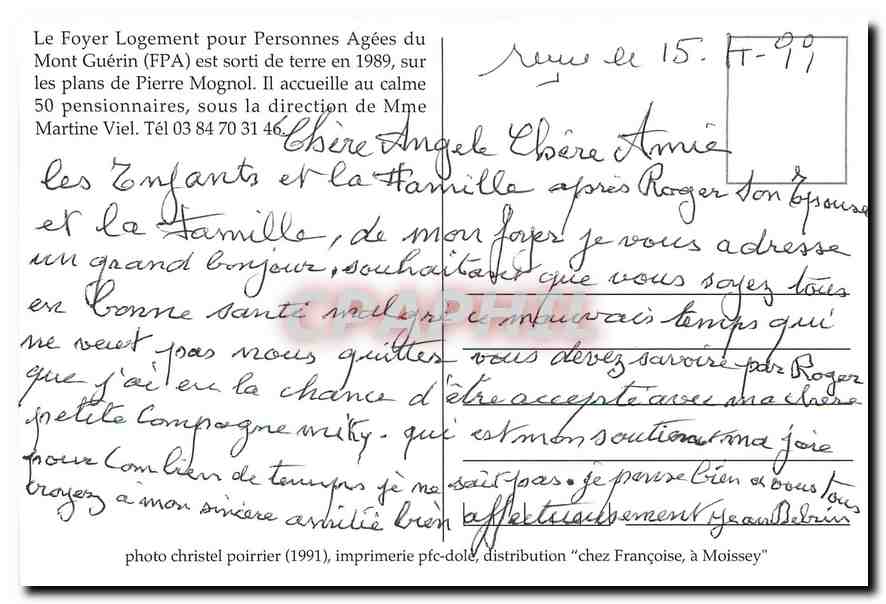 Le Foyer Logement pour Personnes Agées du
Mont Guérin (FPA) est sorti de terre en 1989, sur
les plans de Pierre Mognol. Il accueille au calme
50 pensionnaires, sous la direction de Mme
Martine Viel. Tél 03 84 70 31 46.
reçue le 15. 99
Chère Angele Chère Amie
les Enfants et la Famille après Roger Son Epouse
et la Famille, de mon foyer je vous adresse
un grand bonjour, souhaitant que vous soyez tous
en bonne santé malgré le mauvais temps qui
ne veut pas nous quitter vous devez savoire par Roger
que j'ai eu la chance d'être accepté avec ma chère
petite Compagne miky. qui est mon soutien et ma joie
pour Combien de temps je ne sait pas. je pense bien a vous tous
croyez à mon sincère amitié bien affectueusement Jean
CPAPHIL
photo christel poirrier (1991), imprimerie pfc-dole, distribution "chez Françoise, à Moissey"